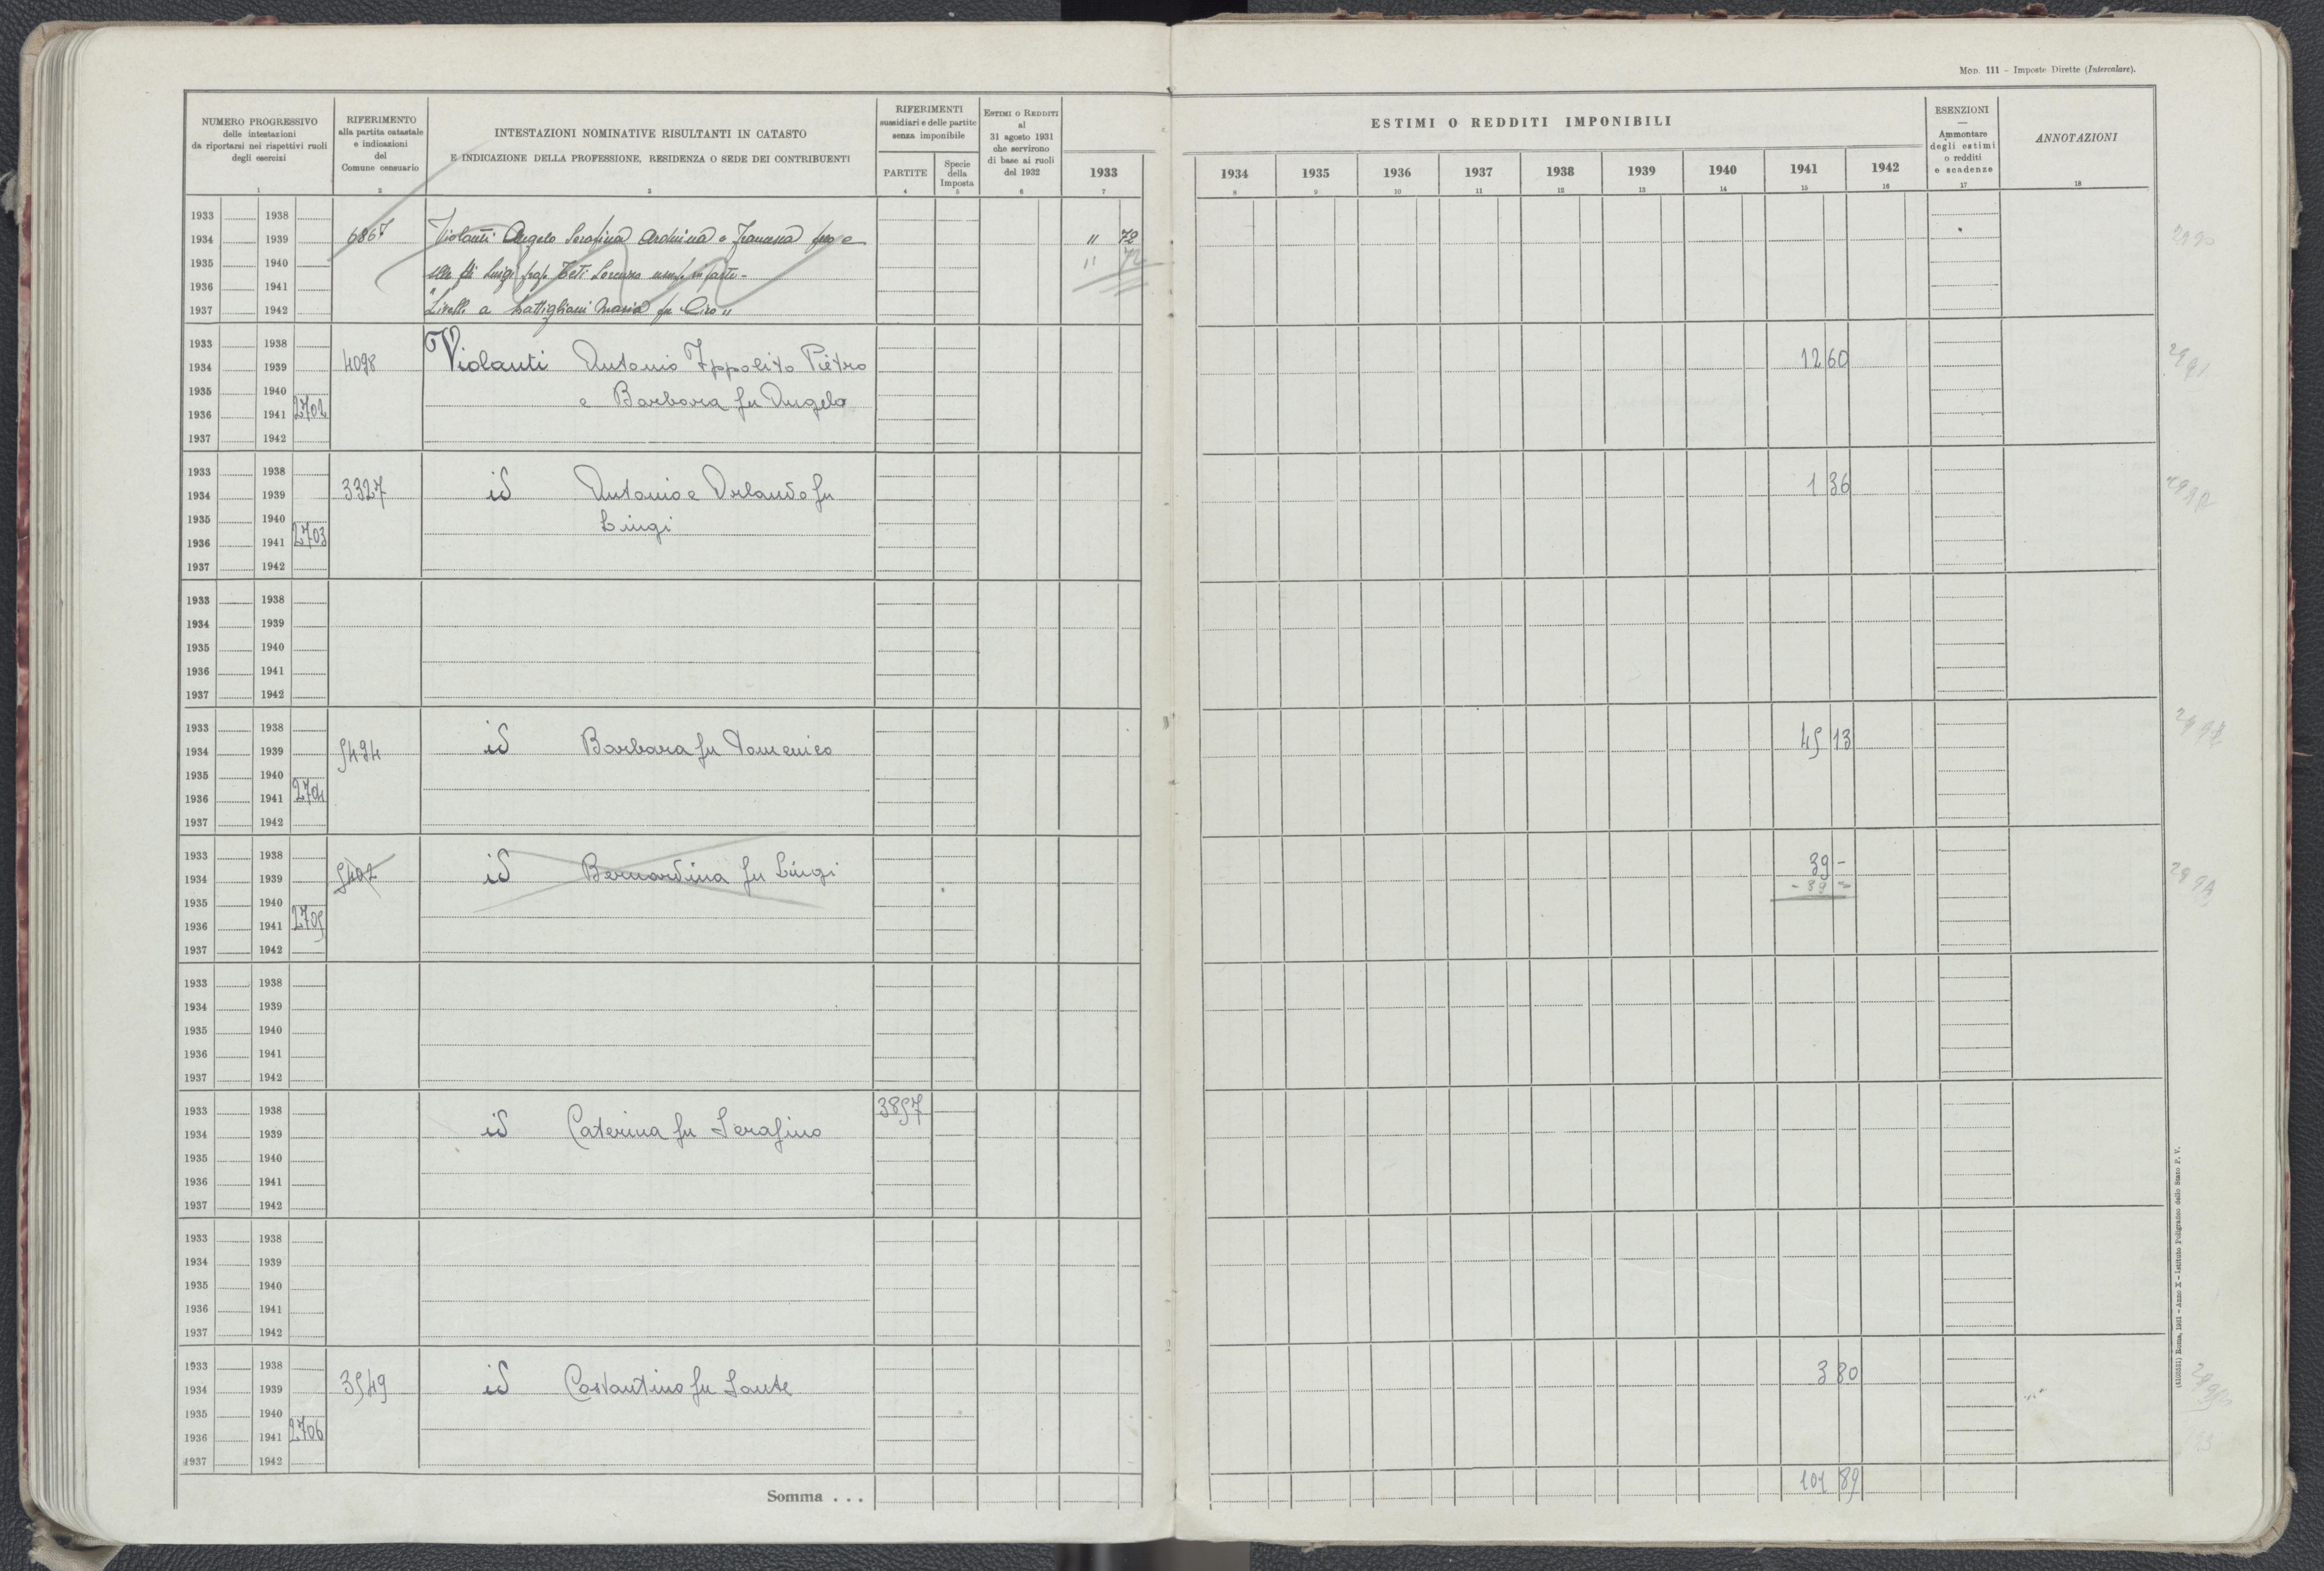 Mod. 111 – Imposte Dirette (Intercalare).
NUMERO PROGRESSIVO
delle intestazioni
da riportarsi nei rispettivi ruoli
degli esercizi
1
RIFERIMENTO
alla partita catastale
e indicazioni
del
Comune censuario
2
INTESTAZIONI NOMINATIVE RISULTANTI IN CATASTO
E INDICAZIONE DELLA PROFESSIONE, RESIDENZA O SEDE DEI CONTRIBUENTI
3
RIFERIMENTI
sussidiari e delle partite
senza imponibile
PARTITE
4
Specie
della
Imposta
5
Estimi o Redditi
al
31 agosto 1931
che servirono
di base ai ruoli
del 1932
6
1933
7
ESTIMI O REDDITI IMPONIBILI
1934 1935 1936 1937 1938 1939 1940 1941 1942
8 9 10 11 12 13 14 15 16
ESENZIONI
—
Ammontare
degli estimi
o redditi
e scadenze
17
ANNOTAZIONI
18
1933 1938
1934 1939 6867 Violanti Angelo Serafina Arduina e Francesca fra e " 72
1935 1940 Luigi Teti Lorenza in parte - " 72
1936 1941
1937 1942 Livell. a Battigliani Maria fu Ciro "
2990
1933 1938
1934 1939 4098 Violanti Antonio Ippolito Pietro 12 60
1935 1940 e Barbara fu Angelo
1936 1941 2702
1937 1942
2991
1933 1938
1934 1939 3327 id Antonio e Orlando fu 1 36
1935 1940 Luigi
1936 1941 2703
1937 1942
1933 1938
1934 1939
1935 1940
1936 1941
1937 1942
1933 1938
1934 1939 5494 id Barbara fu Domenico 45 13
1935 1940
1936 1941 2704
1937 1942
1933 1938
1934 1939 5402 id Bernardina fu Luigi 39 -
1935 1940 - 39 =
1936 1941 2705
1937 1942
2994
1933 1938
1934 1939
1935 1940
1936 1941
1937 1942
1933 1938 3857
1934 1939 id Caterina fu Serafino
1935 1940
1936 1941
1937 1942
1933 1938
1934 1939
1935 1940
1936 1941
1937 1942
1933 1938
1934 1939 3549 id Costantino fu Sante 3 80
1935 1940
1936 1941 2706
1937 1942
Somma . . . 101 89
(4105531) Roma, 1931 – Anno X – Istituto Poligrafico dello Stato P. V.